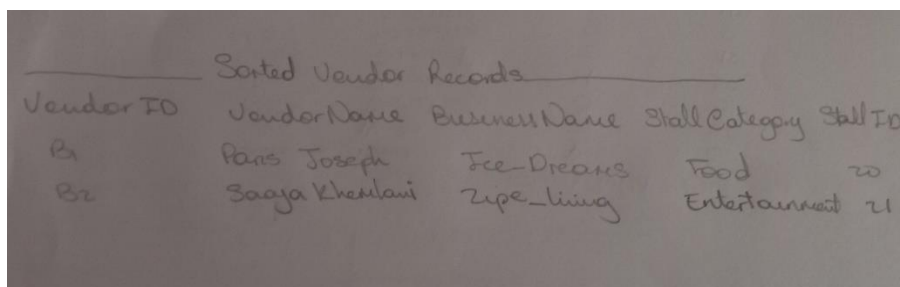 Sorted Vendor Records
Vendor ID VendorName BusinessName StallCategory Stall ID
B1 Paris Joseph Ice_Dreams Food 20
B2 Khemlani Entertainment 21